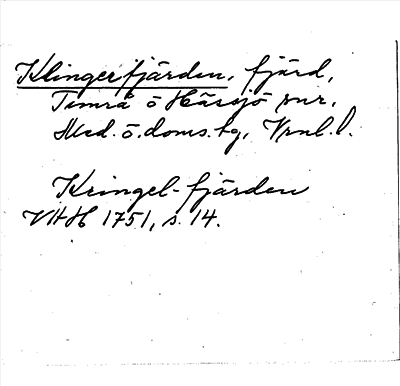 Klingerfjärden, fjärd,
Timrå o Hässjö snr,
Med. ö. doms. tg, Vnl. l.
Kringel-fjärden
VHH 1751, s. 14.